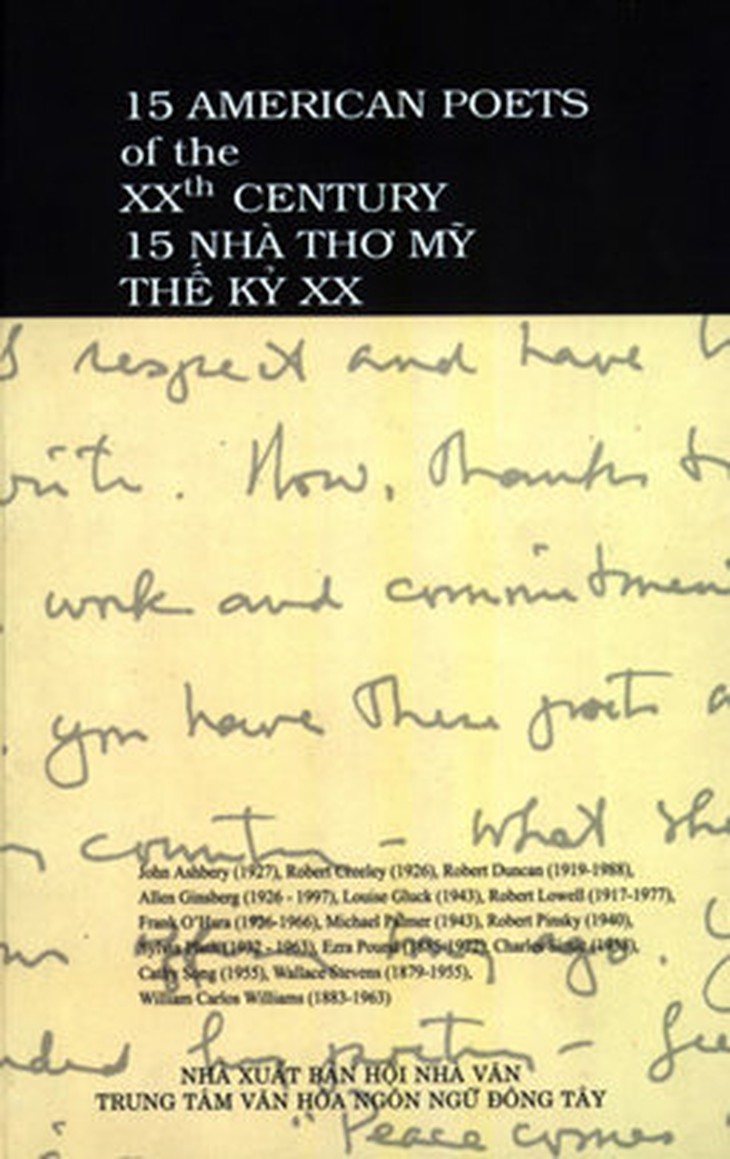 15 AMERICAN POETS
of the
XXth CENTURY
15 NHÀ THƠ MỸ
THẾ KỶ XX
respect and have
write. Now, thanks to
work and commitment
you have these poets
country - what she
John Ashbery (1927), Robert Creeley (1926), Robert Duncan (1919-1988),
Allen Ginsberg (1926 - 1997), Louise Gluck (1943), Robert Lowell (1917-1977),
Frank O'Hara (1926-1966), Michael Palmer (1943), Robert Pinsky (1940),
Sylvia Plath (1932 - 1963), Ezra Pound (1885-1972), Charles Simic (1938),
go.
Cathy Song (1955), Wallace Stevens (1879-1955),
William Carlos Williams (1883-1963)
her poetry -
NHÀ XUẤT BẢN HỘI NHÀ VĂN
TRUNG TÂM VĂN HÓA NGÔN NGỮ ĐÔNG TÂY
"Peace comes